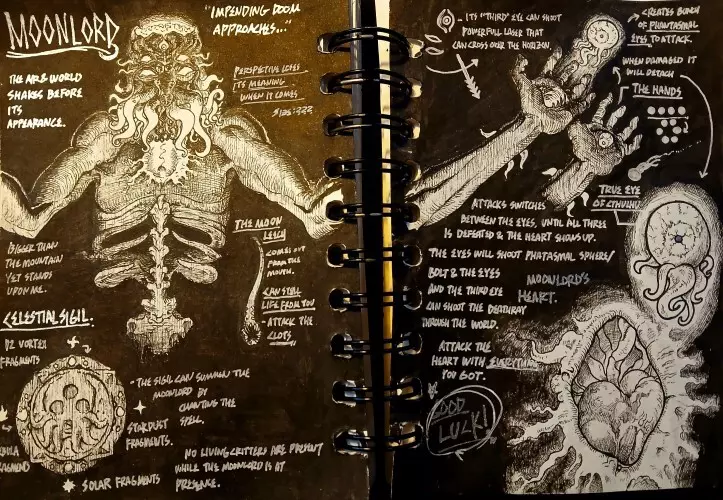 MOONLORD
"IMPENDING DOOM
APPROACHES..."
THE AIR & WORLD
SHAKES BEFORE
ITS
APPEARANCE.
PERSPECTIVE LOSES
ITS MEANING
WHEN IT COMES
SIZE:???
BIGGER THAN
THE MOUNTAIN
YET STANDS
UPON ME.
THE MOON
LEECH
COMES OUT
FROM THE
MOUTH.
CAN STEAL
LIFE FROM YOU
ATTACK THE
CLOTS
CELESTIAL SIGIL:
VORTEX
FRAGMENTS
- THE SIGIL CAN SUMMON THE
MOONLORD BY
CHANTING THE
SPELL.
STARDUST
FRAGMENTS.
SOLAR FRAGMENTS
NO LIVING CRITTERS ARE PRESENT
WHILE THE MOONLORD IS AT
PRESENCE.
- ITS "THIRD" EYE CAN SHOOT
POWERFULL LASER THAT
CAN CROSS OVER THE HORIZON.
CREATES BUNCH
OF PHANTASMAL
EYES TO ATTACK.
WHEN DAMAGED IT
WILL DETACH
THE HANDS
TRUE EYE
OF CTHULHU
ATTACKS SWITCHES
BETWEEN THE EYES, UNTIL ALL THREE
IS DEFEATED & THE HEART SHOWS UP.
THE EYES WILL SHOOT PHATASMAL SPHERE/
BOLT & THE EYES
AND THE THIRD EYE
CAN SHOOT THE DEATHRAY
THROUGH THE WORLD.
MOONLORD'S
HEART.
ATTACK THE
HEART WITH EVERYTHING
YOU GOT.
GOOD
LUCK!